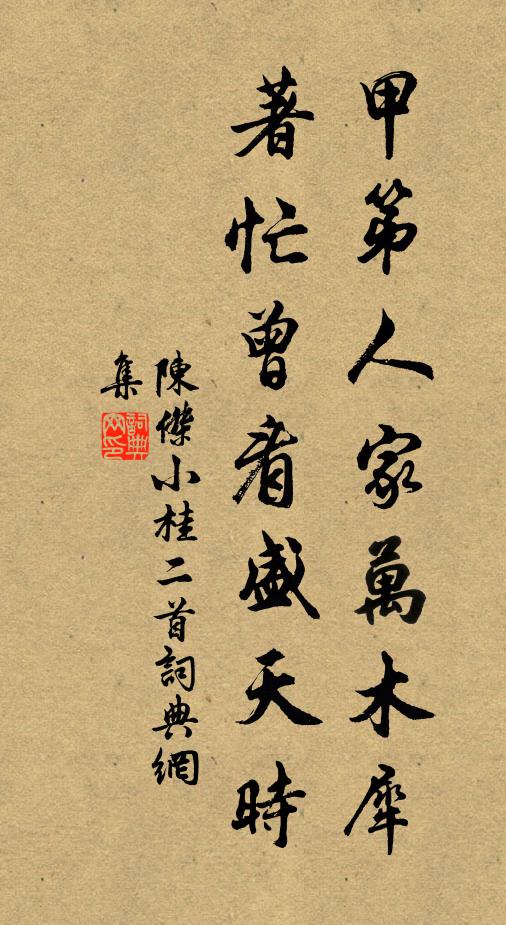 甲第人家萬木犀
著忙曾看盛天時
陳傑小桂二首詞典網
集
詞典網印